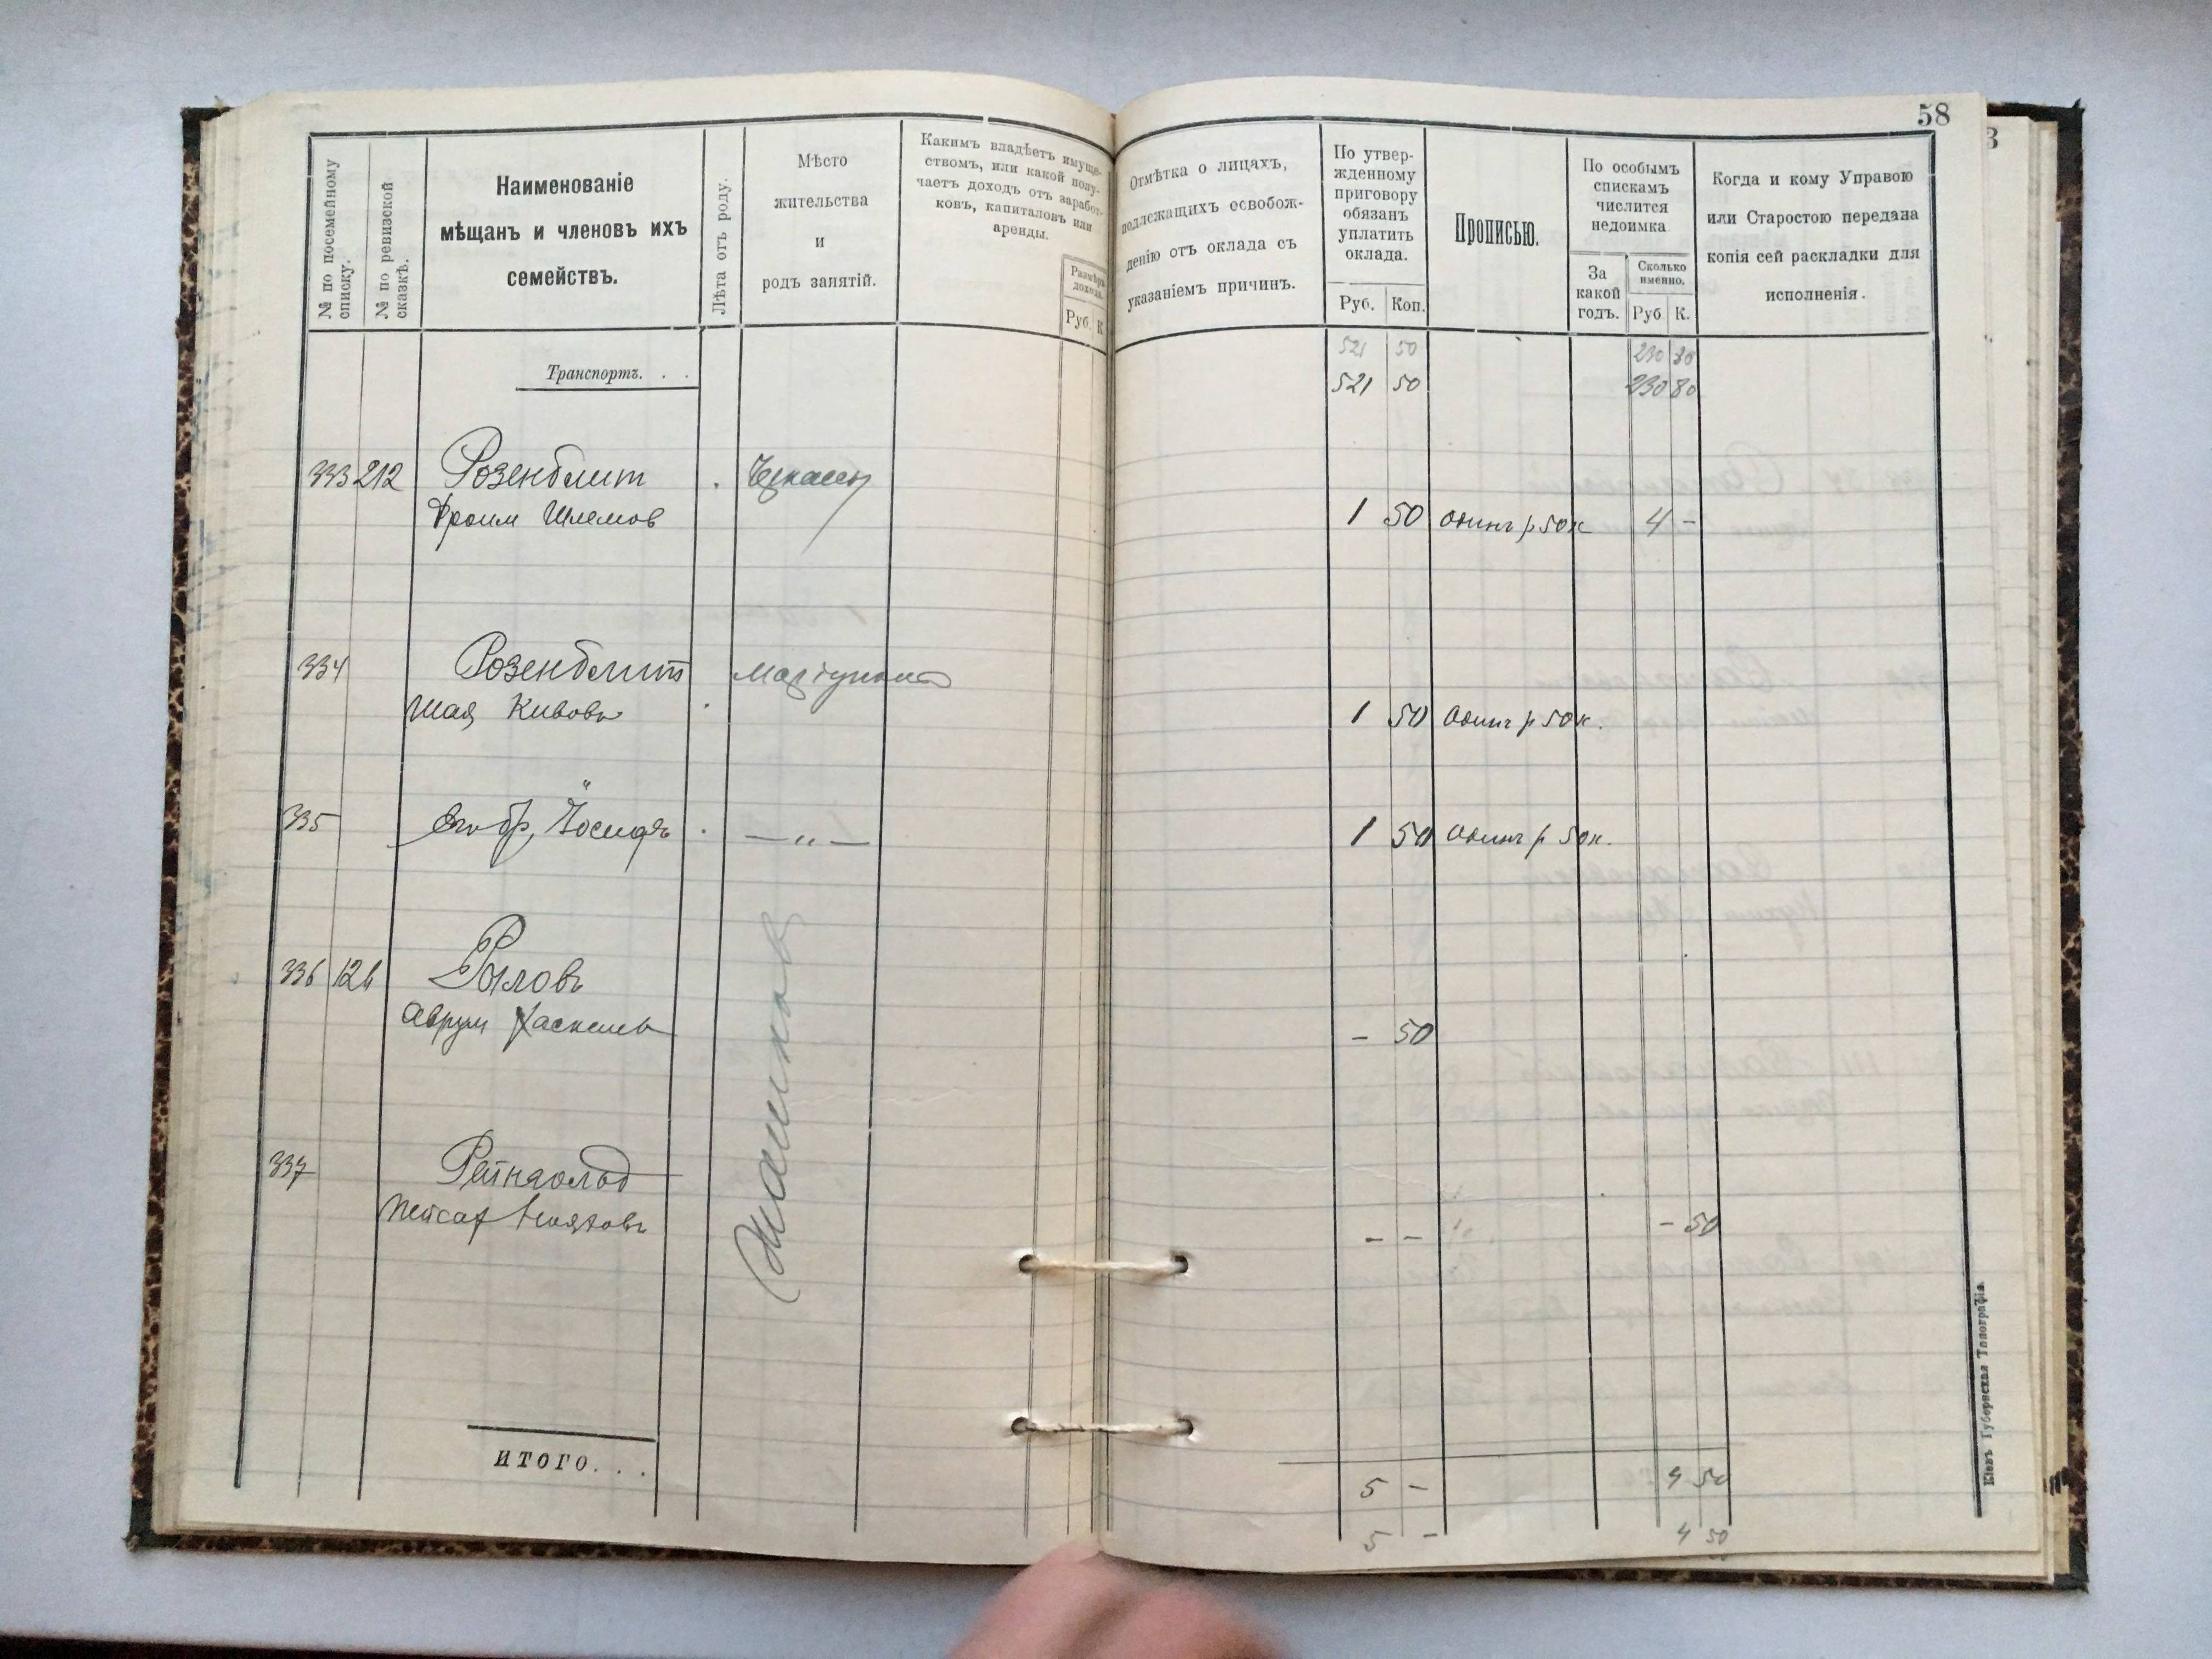 58
№ по посемейному списку.
№ по ревизской сказкѣ.
Наименованіе
мѣщанъ и членовъ ихъ
семействъ.
Лѣта отъ роду.
Мѣсто
жительства
и
родъ занятій.
Какимъ владѣетъ имуще-
ствомъ, или какой полу-
чаетъ доходъ отъ заработ-
ковъ, капиталовъ или
аренды.
Размѣръ
дохода.
Руб. К
Отмѣтка о лицахъ,
подлежащихъ освобож-
денію отъ оклада съ
указаніемъ причинъ.
По утвер-
жденному
приговору
обязанъ
уплатить
оклада.
Руб. Коп.
Прописью.
По особымъ
спискамъ
числится
недоимка
За
какой
годъ.
Сколько
именно.
Руб К.
Когда и кому Управою
или Старостою передана
копія сей раскладки для
исполненія.
521 50 230 80
Транспортъ. . . 521 50 230 80
333 212 Розенблит Черкассы
Фроим Шлемов 1 50 Одинъ р 50 к 4 -
334 Розенблит
Шая Кивовъ 1 50 Одинъ р 50 к.
335 его бр, Іосифъ — „ — 1 50 Одинъ р 50 к.
336 126 Рыловъ
Аврум Хаскель - 50
Жашков
337
Пейсах - - - 50
ИТОГО. . . 5 - 4 50
5 - 4 50
Кіевъ Губернская Типографія.